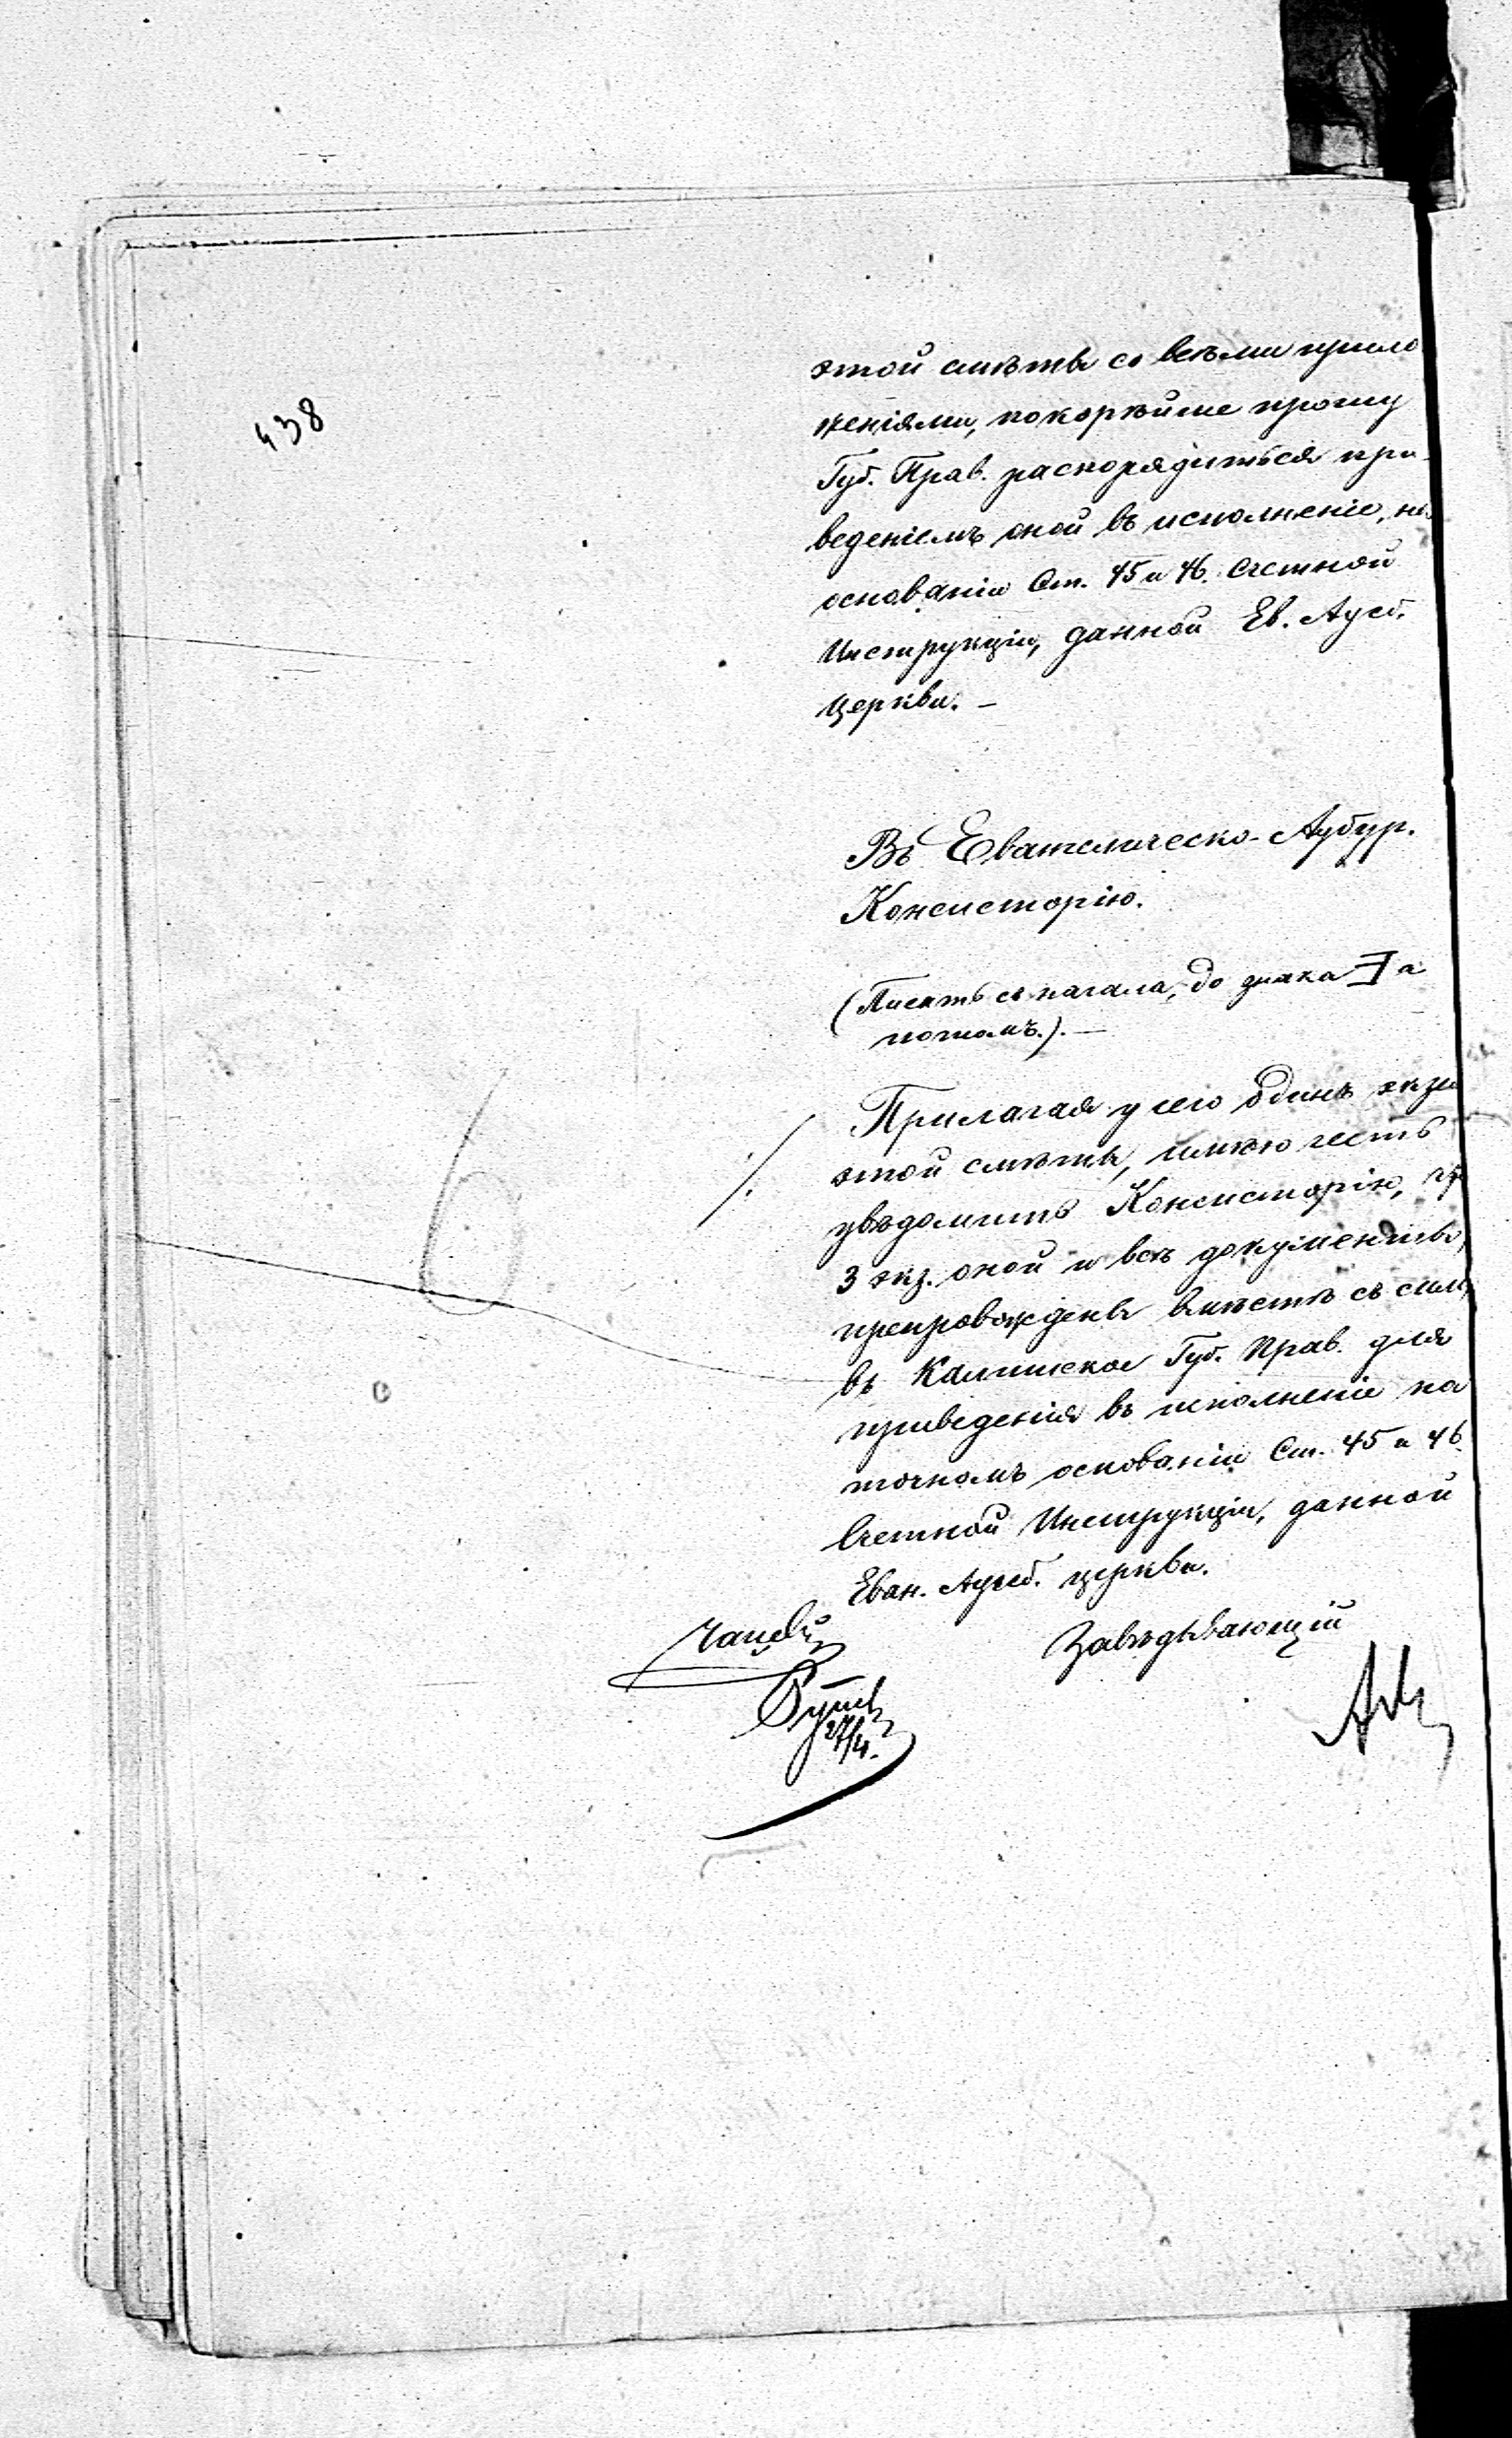 438
этой смѣты со всѣми прило
женіями, покорнѣйше прошу
Губ. Прав. распорядиться при-
веденіемъ оной въ исполненіе, на
основаніи Ст. 45 и 46. Счетной
Инструкціи, данной Ев. Аугсб.
церкви. —
Въ Евангелическо-Аугбур.
Консисторію.
(Писать съ начала, до знака а
потомъ.). —
Прилагая у сего одинъ экзем
этой смѣты, имѣю честь
увѣдомить Консисторію, что
3 экз. оной и всѣ документы,
препровождены вмѣстѣ съ симъ,
въ Калишское Губ. Прав. для
приведенія въ исполненіе на
точномъ основаніи Ст. 45 и 46.
Счетной Инструкціи, данной
Еван. Аугсб. церкви.
Завѣдывающій
27/4.